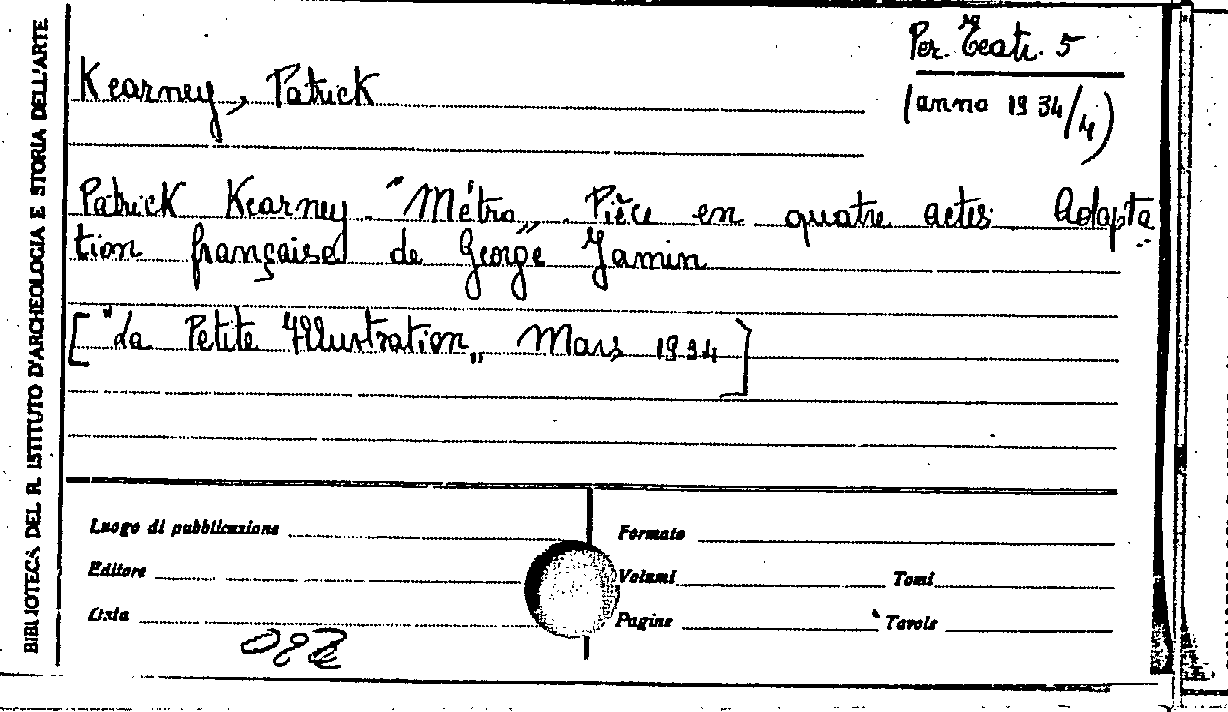 BIBLIOTECA DEL R. ISTITUTO D'ARCHEOLOGIA E STORIA DELL'ARTE
Per. Teatr. 5
(anno 1934/4)
Kearney, Patrick
Patrick Kearney. "Métro„. Pièce en quatre actes. Adapta
tion française de George Jamin
["La Petite Illustration„ Mars 1934]
Luogo di pubblicazione
Formato
Editore
Volumi
Tomi
Data
Pagine
Tavole